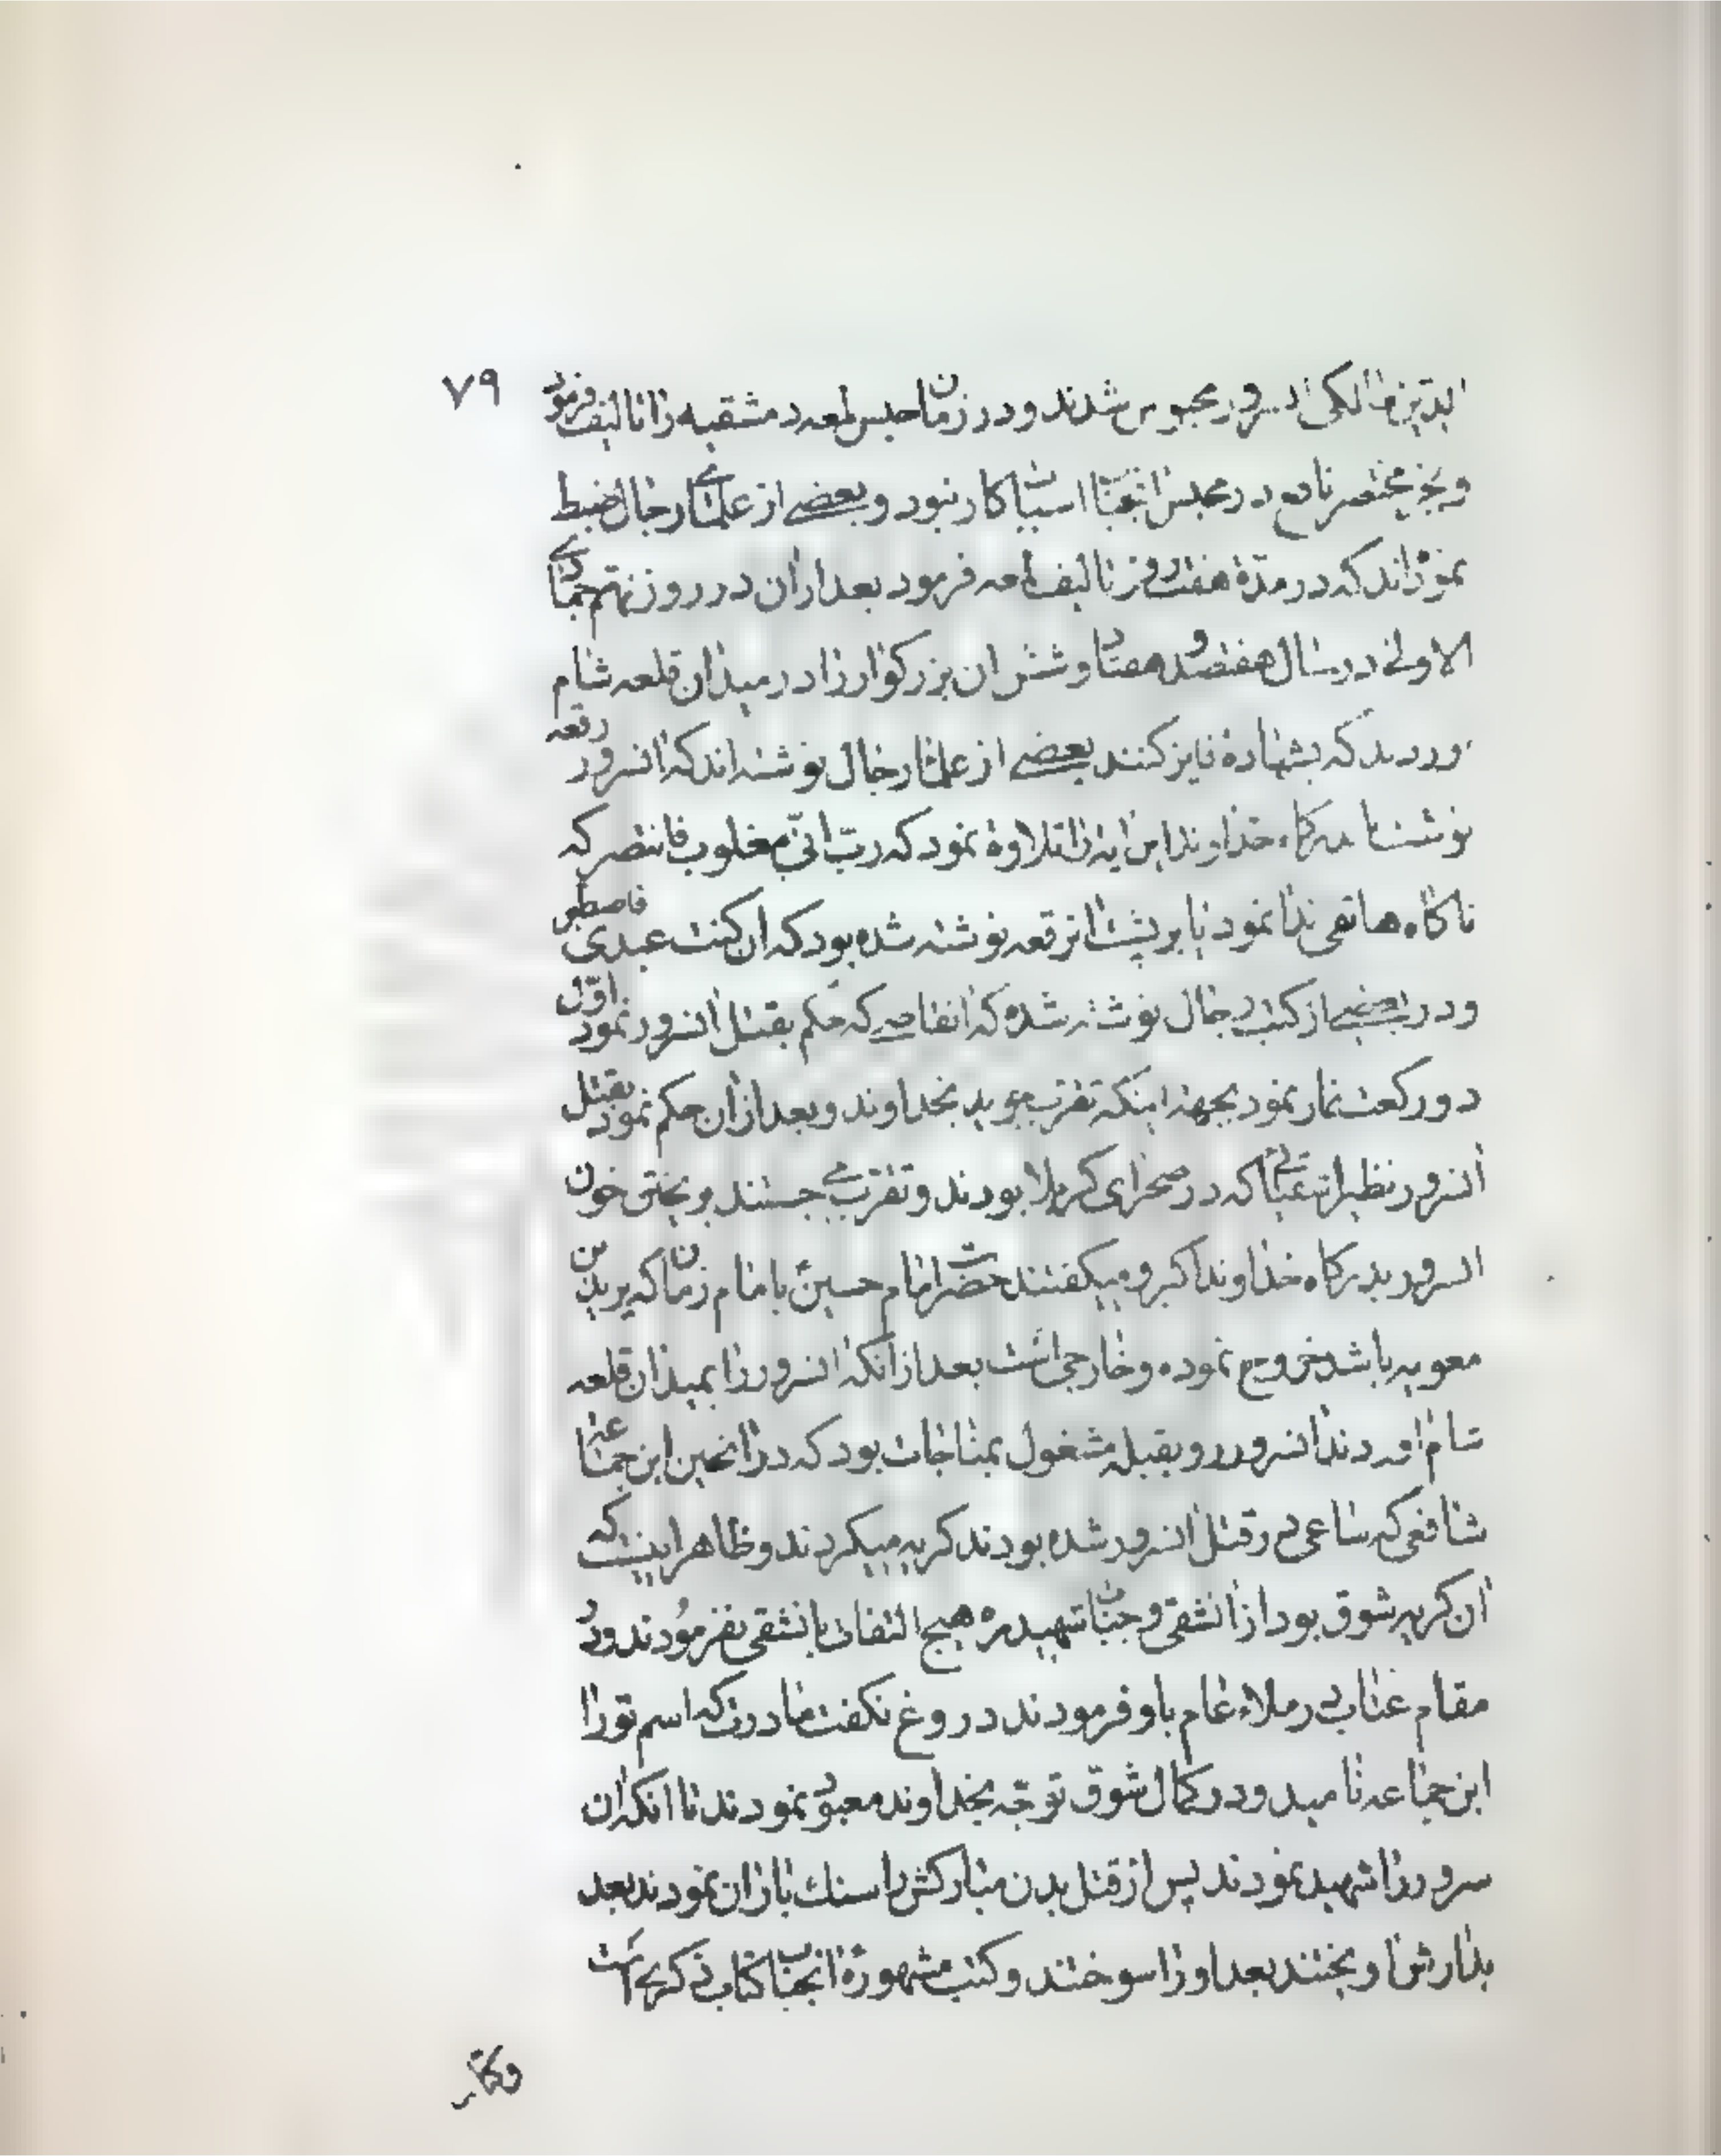 ۷۹
الدین مالکی انسرور محبوس شدند و در زمان حبس لمعه دمشقیه را تالیف فرمود
و بجز مختصر نافع در مجلس انجناب اسباب کار نبود و بعضی از علمای رجال ضبط
نموده‌اند که در مدة هفت روز تالیف لمعه فرمود بعد از ان در روز نهم جمادی
الاولی در سال هفتصد و هفتاد و شش ان بزرکوار را در میدان قلعه شام
اوردند که بشهادة فایز کنند بعضی از علماء رجال نوشته‌اند که انسرور رقعه
نوشت بدرکاه خداوند این ایه را تلاوة نمود که ربّ انّی مغلوب فانتصر که
ناکاه هاتفی ندا نمود یا بر پشت انرقعه نوشته شده بود که ان کنت عبدی فاصطبر
و در بعضی از کتب رجال نوشته شده که انقاضی که حکم بقتل انسرور نمود اوّل
دو رکعت نماز نمود بجهة اینکه تقرب جوید بخداوند و بعد از ان حکم نمود بقتل
انسرور نظیر که در صحرای کربلا بودند و تقرب می جستند بریختن خون
انسرور بدرکاه خداوند اکبر و میکفتند حضرت امام حسین ع با امام زمان که یزید بن
معویه باشد خروج نموده و خارجی است بعد از انکه انسرور را بمیدان قلعه
شام اوردند انسرور رو بقبله مشغول بمناجات بود که در انحین ابن جماعه
شافعی که ساعی در قتل انسرور شده بودند کریه میکردند و ظاهر اینست که
ان کریه شوق بود از انشقی و جناب شهید ره هیچ التفات بانشقی نفرمودند و در
مقام عتاب در ملاء عام باو فرمودند دروغ نکفت مادرت که اسم تو را
ابن جماعه نامید و در کمال شوق توجّه بخداوند معبود نمودند تا انکه ان
سرور را شهید نمودند پس از قتل بدن مبارکش را سنك باران نمودند بعد
بدارش اویختند بعد او را سوختند و کتب مشهورهٔ انجناب کتاب ذکری است